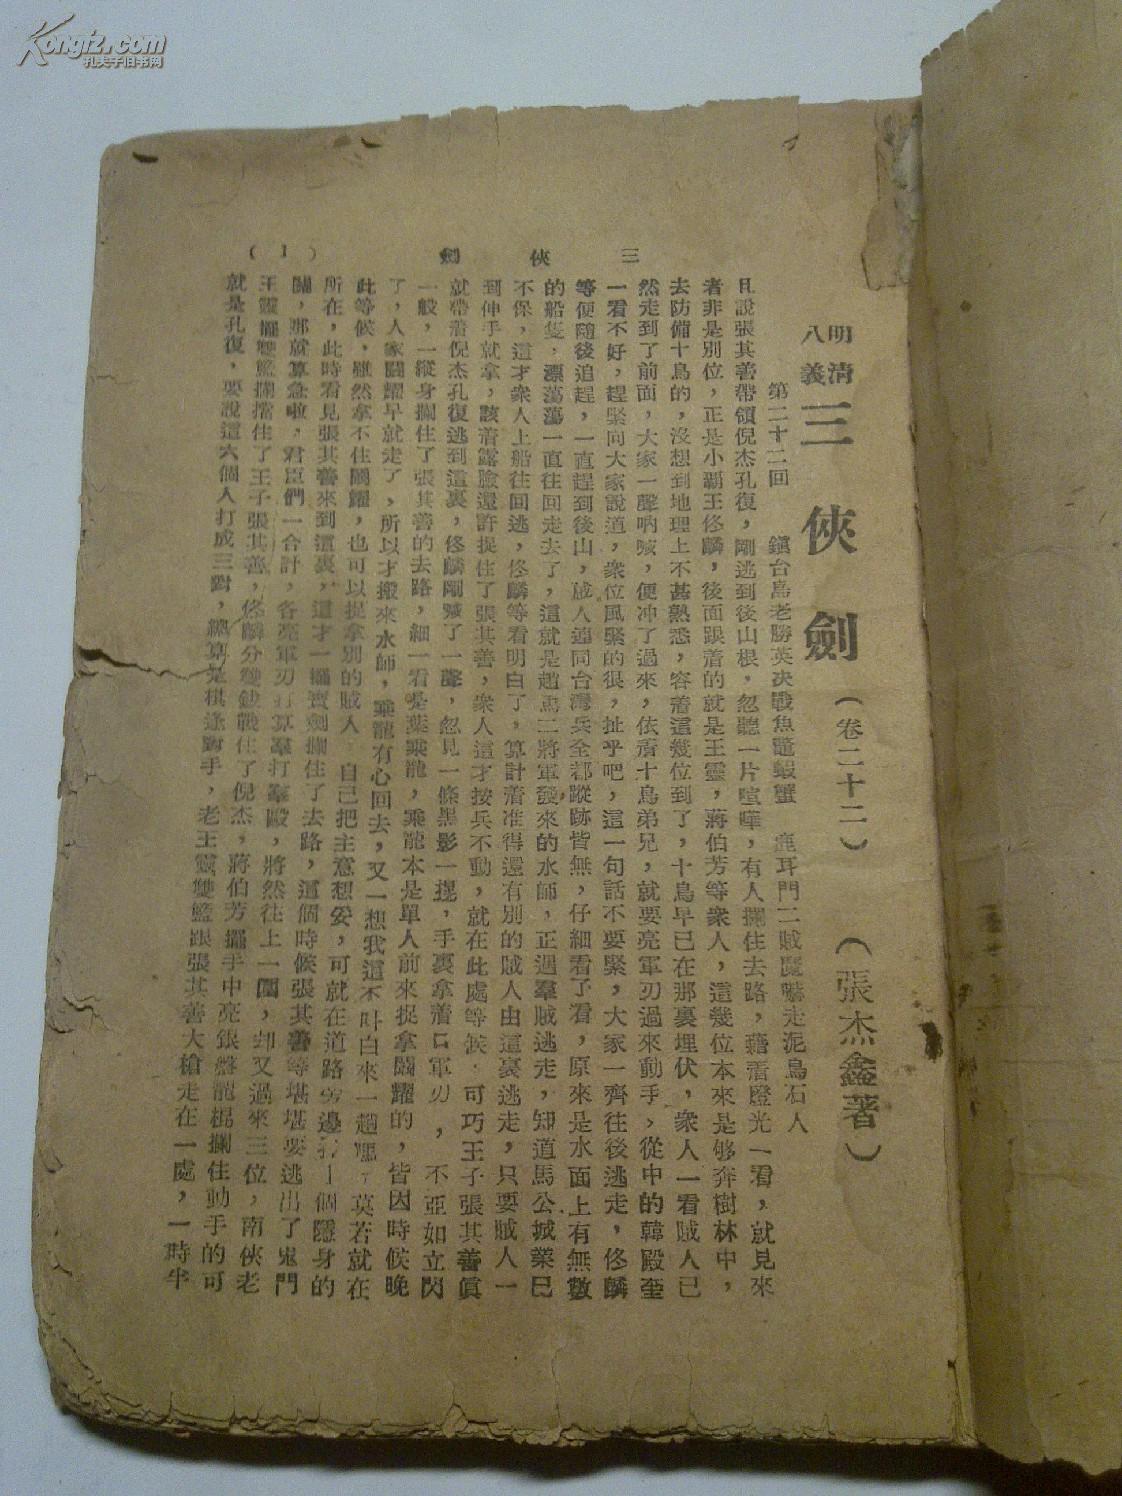 Kongfz.com
孔夫子旧书网
三俠劍
(1)
明清
八義
三俠劍(卷二十二)
(張杰鑫著)
第二十二回 鎮台島老勝英决戰魚鼈蝦蟹 鹿耳門二賊魔嚇走泥鳥石人
且說張其善帶領倪杰孔復,剛逃到後山根,忽聽一片喧嘩,有人攔住去路,藉着燈光一看,就見來
者非是別位,正是小霸王佟麟,後面跟着的就是王靈,蔣伯芳等衆人,這幾位本來是够奔樹林中,
去防備十島的,沒想到地理上不甚熟悉,容着這幾位到了,十島早已在那裏埋伏,衆人一看賊人已
然走到了前面,大家一聲吶喊,便冲了過來,依着十島弟兄,就要亮軍刃過來動手、從中的韓殿奎
一看不好,趕緊向大家說道,衆位風緊的很,扯乎吧,這一句話不要緊,大家一齊往後逃走,佟麟
等便隨後追趕,一直趕到後山,賊人連同台灣兵全都蹤跡皆無,仔細看了看,原來是水面上有無數
的船隻,漂蕩蕩一直往回走去了,這就是趙馬二將軍發來的水師,正遇羣賊逃走,知道馬公城業巳
不保,這才衆人上船往回逃,佟麟等看明白了,算計着准得還有別的賊人由這裏逃走,只要賊人一
到伸手就拿,該着露臉還許捉住了張其善,衆人這才按兵不動,就在此處等候,可巧王子張其善眞
就帶着倪杰孔復逃到這裏,佟麟剛喊了一聲,忽見一條黑影一提,手裏拿着口軍刃,不亞如立閃
一般,一縱身攔住了張其善的去路,細一看是葉乘龍,乘龍本是單人前來捉拿關耀的,皆因時候晚
了,人家關耀早就走了,所以才搬來水師,乘龍有心回去,又一想我這不叫白來一趟嗎,莫若就在
此等候,雖然拿不住關耀,也可以捉拿別的賊人,自己把主意想妥,可就在道路旁邊找一個隱身的
所在,此時看見張其善來到這裏,這才一擺寶劍攔住了去路,這個時候張其善等堪堪要逃出了鬼門
關,那就算急啦,君臣們一合計,各亮軍刃打算羣打羣毆,將然往上一圍,却又過來三位,南俠老
王靈擺雙籃攔擋住了王子張其善,佟麟分雙鈸戰住了倪杰,蔣伯芳擺手中亮銀盤龍棍攔住動手的可
就是孔復,要說這六個人打成三對,總算是棋逢對手,老王靈雙籃跟張其善大槍走在一處,一時半